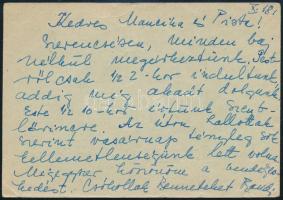 X. 18.
Kedves Mancika és Pista!
Szerencsésen, minden baj
nélkül megérkeztünk. Pest-
ről csak 1/2 2-kor indultunk,
addig még akadt dolgunk.
Este 1/2 10-kor értünk Szent-
lőrincre. Az úton hallottak
szerint vasárnap tényleg sok
kellemetlenségünk lett volna.
Mégegyszer köszönöm a vendég-
kedést. Csókollak Benneteket